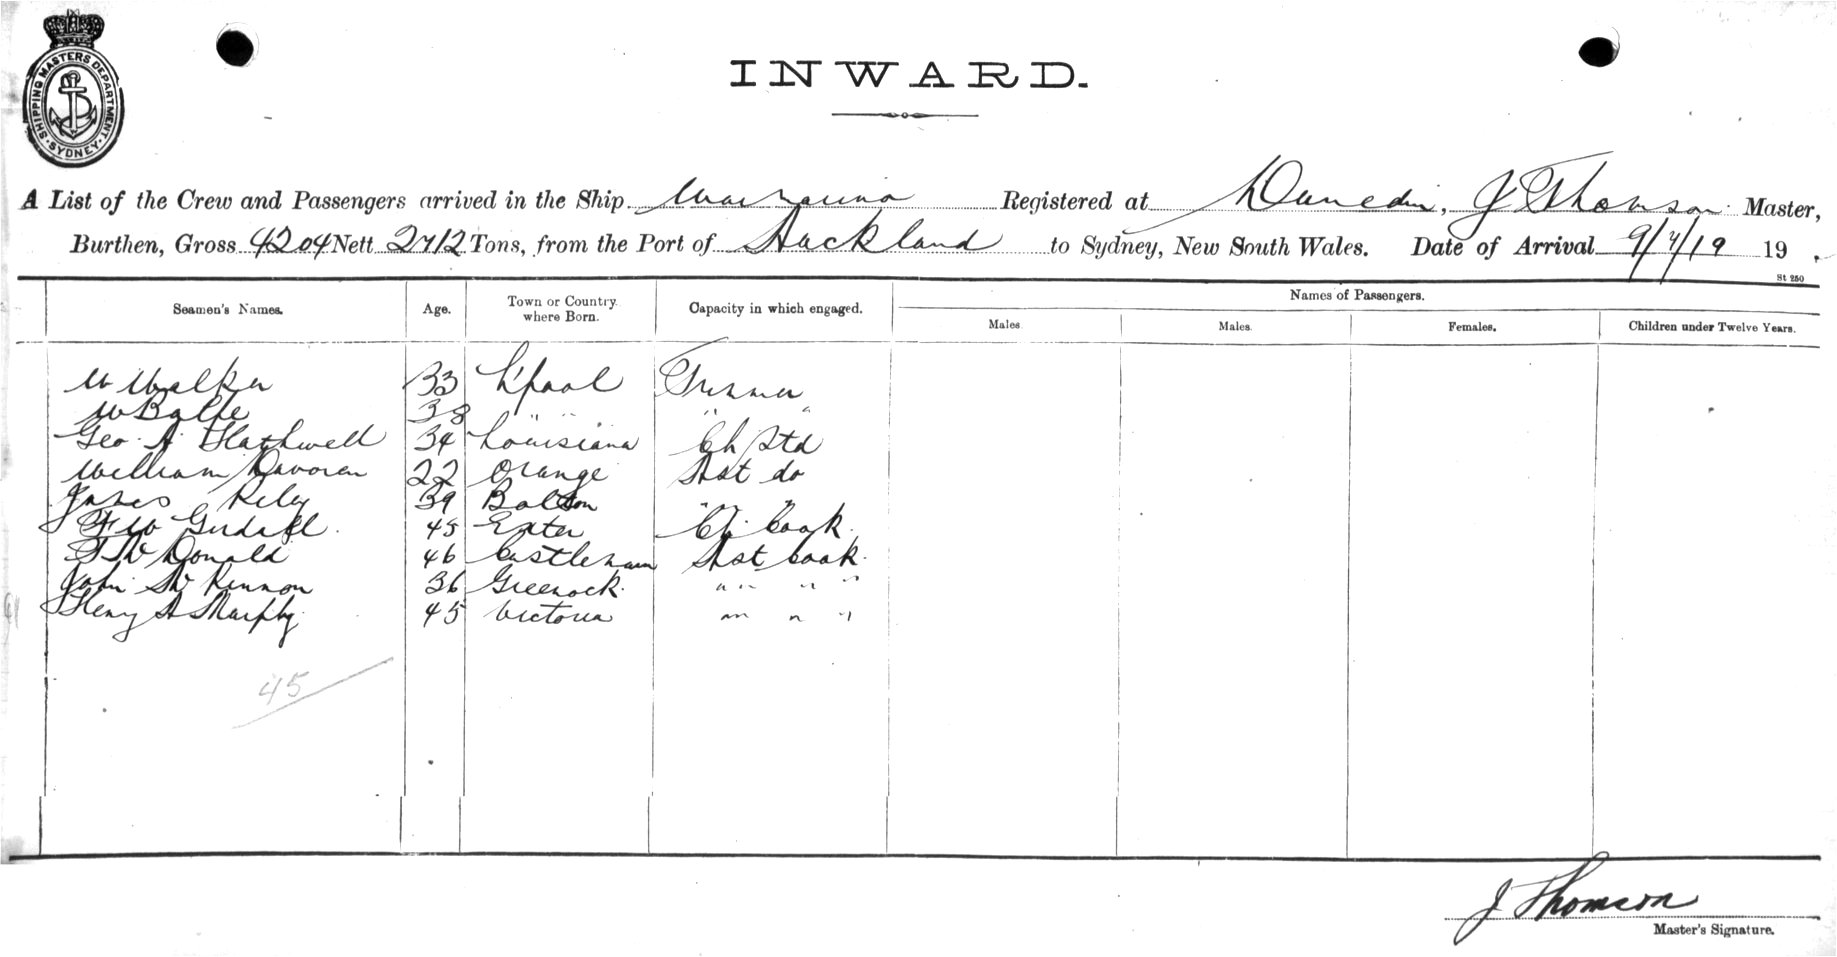 SHIPPING MASTERS DEPARTMENT. SYDNEY.
INWARD.
A List of the Crew and Passengers arrived in the Ship Registered at Dunedin, J Thomson Master,
Burthen, Gross 4204 Nett 2712 Tons, from the Port of Auckland to Sydney, New South Wales. Date of Arrival 9/7/19 19
St 250
Seamen's Names. Age. Town or Country where Born. Capacity in which engaged. Names of Passengers.
Males Males. Females. Children under Twelve Years.
W Walker 33 L'pool Trimmer
W 38 " " " "
Geo. A 34 Louisiana Ch Std
William Davoren 22 Orange Asst do
James Riley 39 Bolton " "
F W 45 Exter Ch. Cook.
F Mc Donald 46 Asst Cook.
John Mc Kinnon 36 Greenock. " " " "
Henry A Murphy. 45 Victoria " " "
45
J Thomson
Master's Signature.